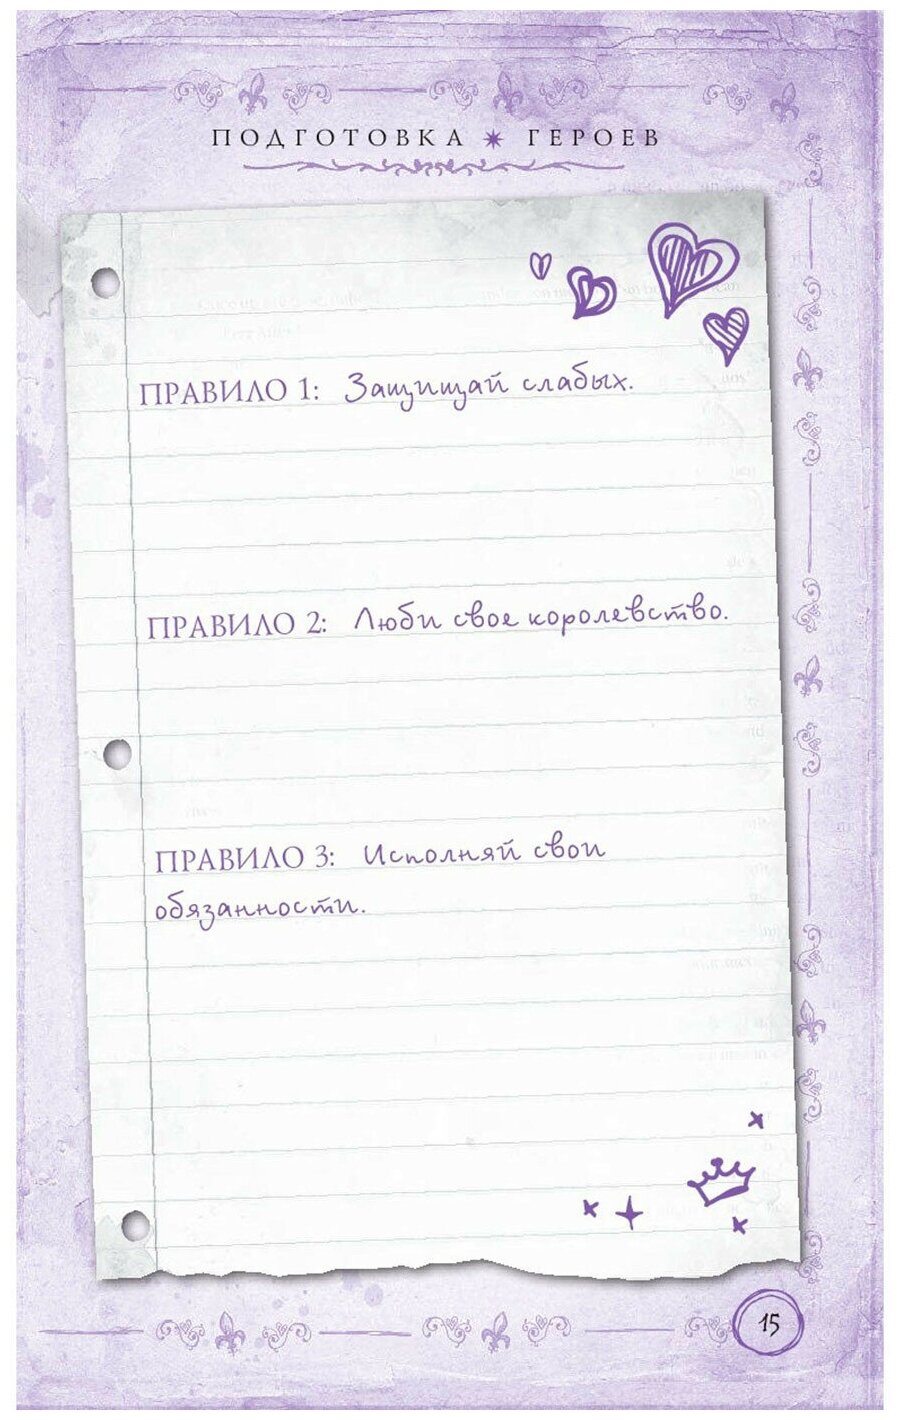 ПОДГОТОВКА ✷ ГЕРОЕВ
ПРАВИЛО 1: Защищай слабых.
ПРАВИЛО 2: Люби свое королевство.
ПРАВИЛО 3: Исполняй свои
обязанности.
15